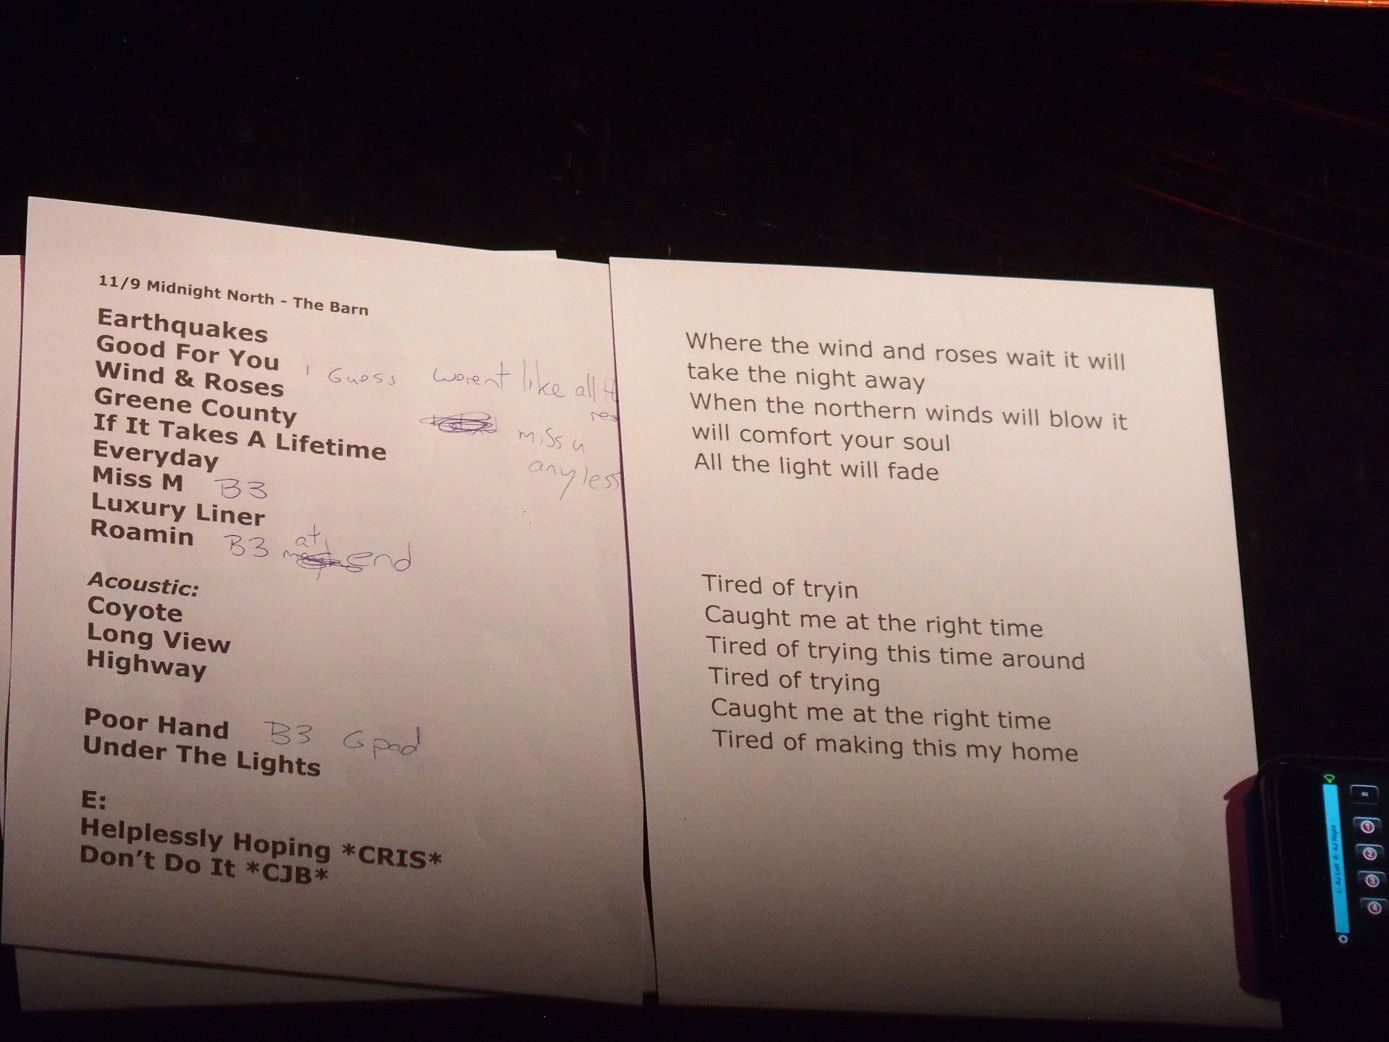 11/9 Midnight North - The Barn
Earthquakes
Good For You
Wind & Roses
Greene County
If It Takes A Lifetime
Everyday
Miss M B3
Luxury Liner
Roamin B3 at end
Acoustic:
Coyote
Long View
Highway
Poor Hand B3 G pad
Under The Lights
E:
Helplessly Hoping *CRIS*
Don't Do It *CJB*
I Guess werent like all
miss u
any less
Where the wind and roses wait it will
take the night away
When the northern winds will blow it
will comfort your soul
All the light will fade
Tired of tryin
Caught me at the right time
Tired of trying this time around
Tired of trying
Caught me at the right time
Tired of making this my home
1
2
3
4